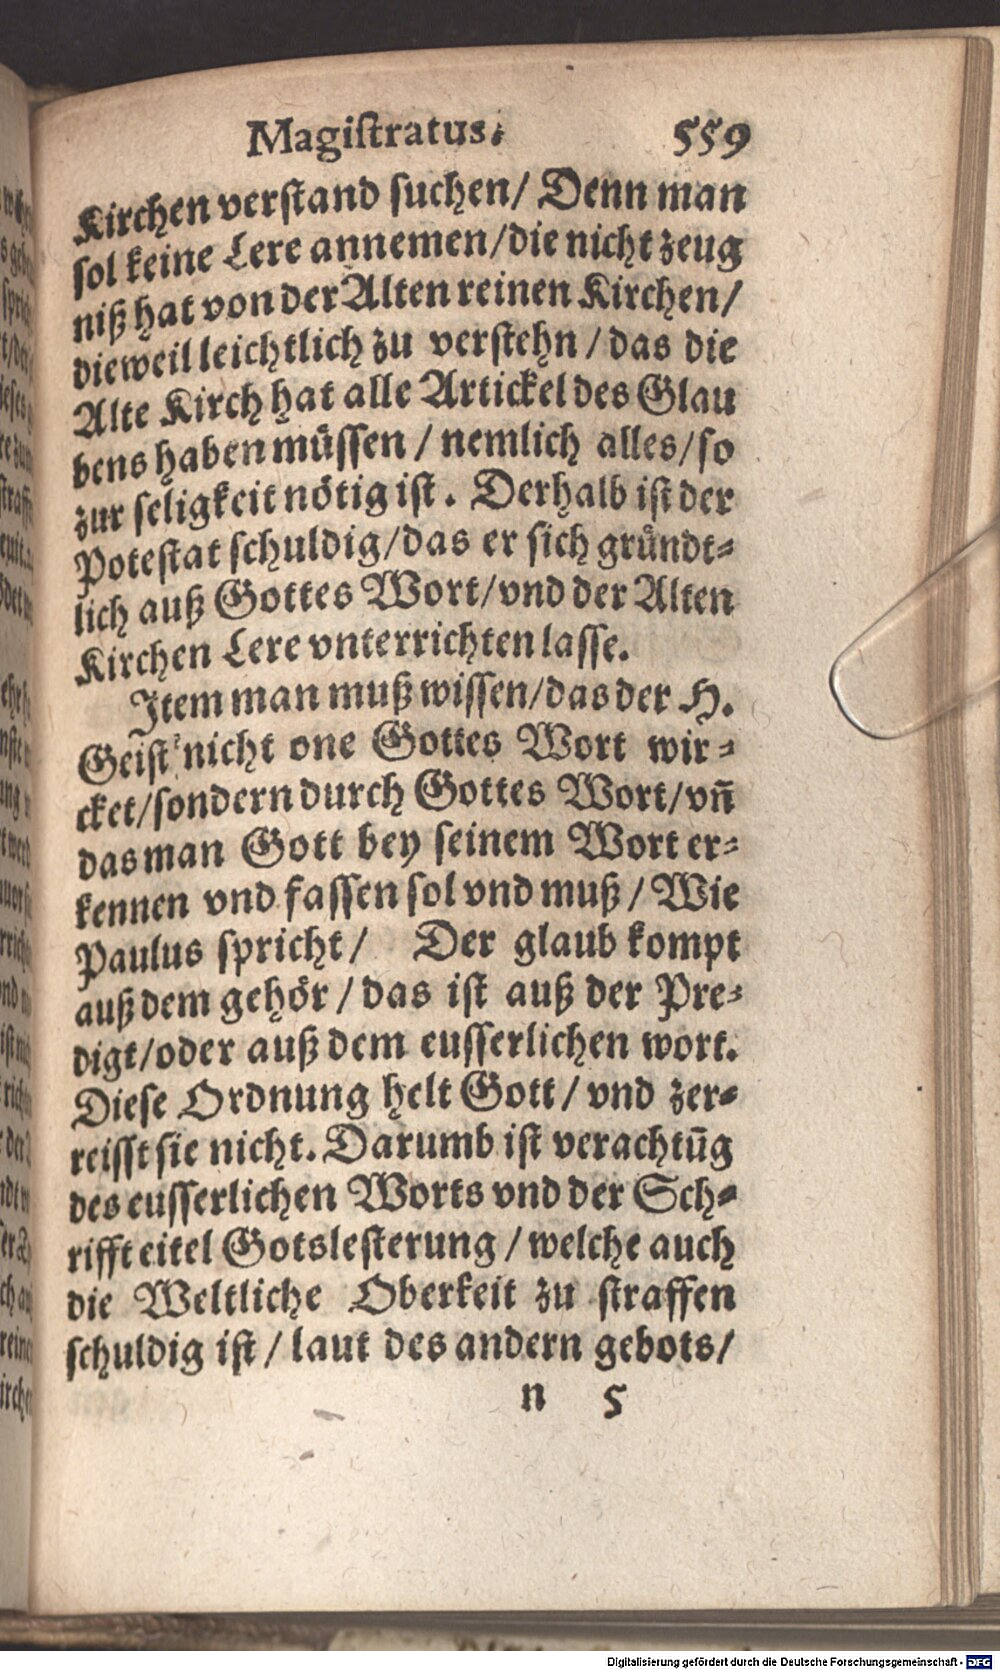 Magistratus. 559
Kirchen verstand suchen/ Denn man
sol keine Lere annemen/die nicht zeug
niß hat von der Alten reinen Kirchen/
dieweil leichtlich zu verstehn/das die
Alte Kirch hat alle Artickel des Glau
bens haben müssen/nemlich alles/so
zur seligkeit nötig ist. Derhalb ist der
Potestat schuldig/das er sich gründt⸗
lich auß Gottes Wort/vnd der Alten
Kirchen Lere vnterrichten lasse.
Item man muß wissen/das der H.
Geist nicht one Gottes Wort wir⸗
cket/sondern durch Gottes Wort/vñ
das man Gott bey seinem Wort er⸗
kennen vnd fassen sol vnd muß/Wie
Paulus spricht/ Der glaub kompt
auß dem gehör/das ist auß der Pre⸗
digt/oder auß dem eusserlichen wort.
Diese Ordnung helt Gott/vnd zer⸗
reisst sie nicht. Darumb ist verachtūg
des eusserlichen Worts vnd der Sch⸗
rifft eitel Gotslesterung/welche auch
die Weltliche Oberkeit zu straffen
schuldig ist/laut des andern gebots/
n 5
Digitalisierung gefördert durch die Deutsche Forschungsgemeinschaft - DFG